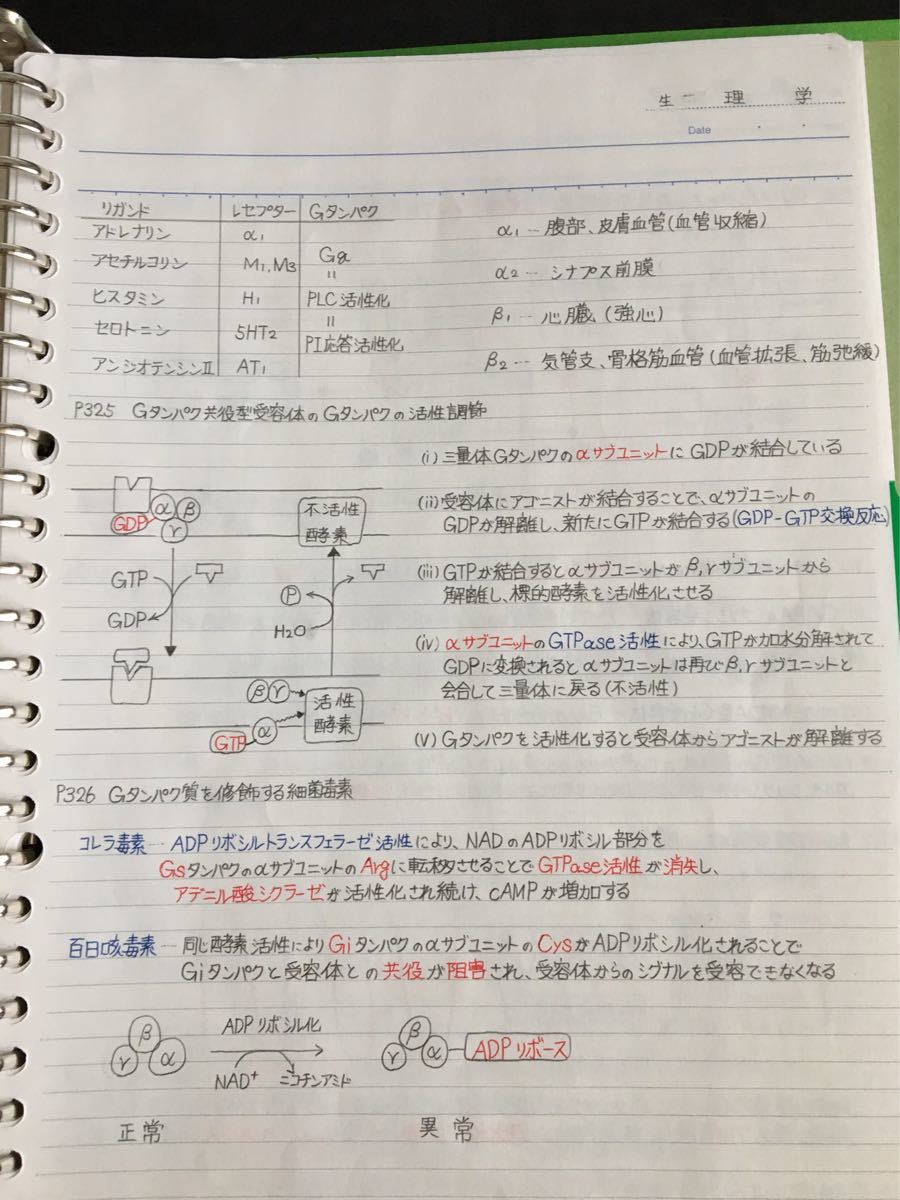 生理学
Date
リガンド レセプター Gタンパク
アドレナリン α₁
アセチルコリン M₁, M₃ Gq
ヒスタミン H₁ PLC 活性化
セロトニン 5HT₂ PI応答活性化
アンジオテンシンⅡ AT₁
α₁…腹部、皮膚血管(血管収縮)
α₂…シナプス前膜
β₁…心臓(強心)
β₂…気管支、骨格筋血管(血管拡張、筋弛緩)
P325 Gタンパク共役型受容体のGタンパクの活性調節
α β
GDP γ
不活性
酵素
GTP
GDP
P
H₂O
β γ
α
GTP
活性
酵素
(i) 三量体Gタンパクのαサブユニットに GDPが結合している
(ii) 受容体にアゴニストが結合することで、αサブユニットの
GDPが解離し、新たにGTPが結合する(GDP-GTP交換反応)
(iii) GTPが結合するとαサブユニットがβ,γサブユニットから
解離し、標的酵素を活性化させる
(iv) αサブユニットのGTPase活性により、GTPが加水分解されて
GDPに変換されるとαサブユニットは再びβ,γサブユニットと
会合して三量体に戻る(不活性)
(V) Gタンパクを活性化すると受容体からアゴニストが解離する
P326 Gタンパク質を修飾する細菌毒素
コレラ毒素…ADPリボシルトランスフェラーゼ活性により、NADのADPリボシル部分を
GsタンパクのαサブユニットのArgに転移させることでGTPase活性が消失し、
アデニル酸シクラーゼが活性化され続け、cAMPが増加する
百日咳毒素…同じ酵素活性によりGiタンパクのαサブユニットのCysがADPリボシル化されることで
Giタンパクと受容体との共役が阻害され、受容体からのシグナルを受容できなくなる
β
γ α
ADPリボシル化
NAD⁺ ニコチンアミド
β
γ α ADPリボース
正常 異常